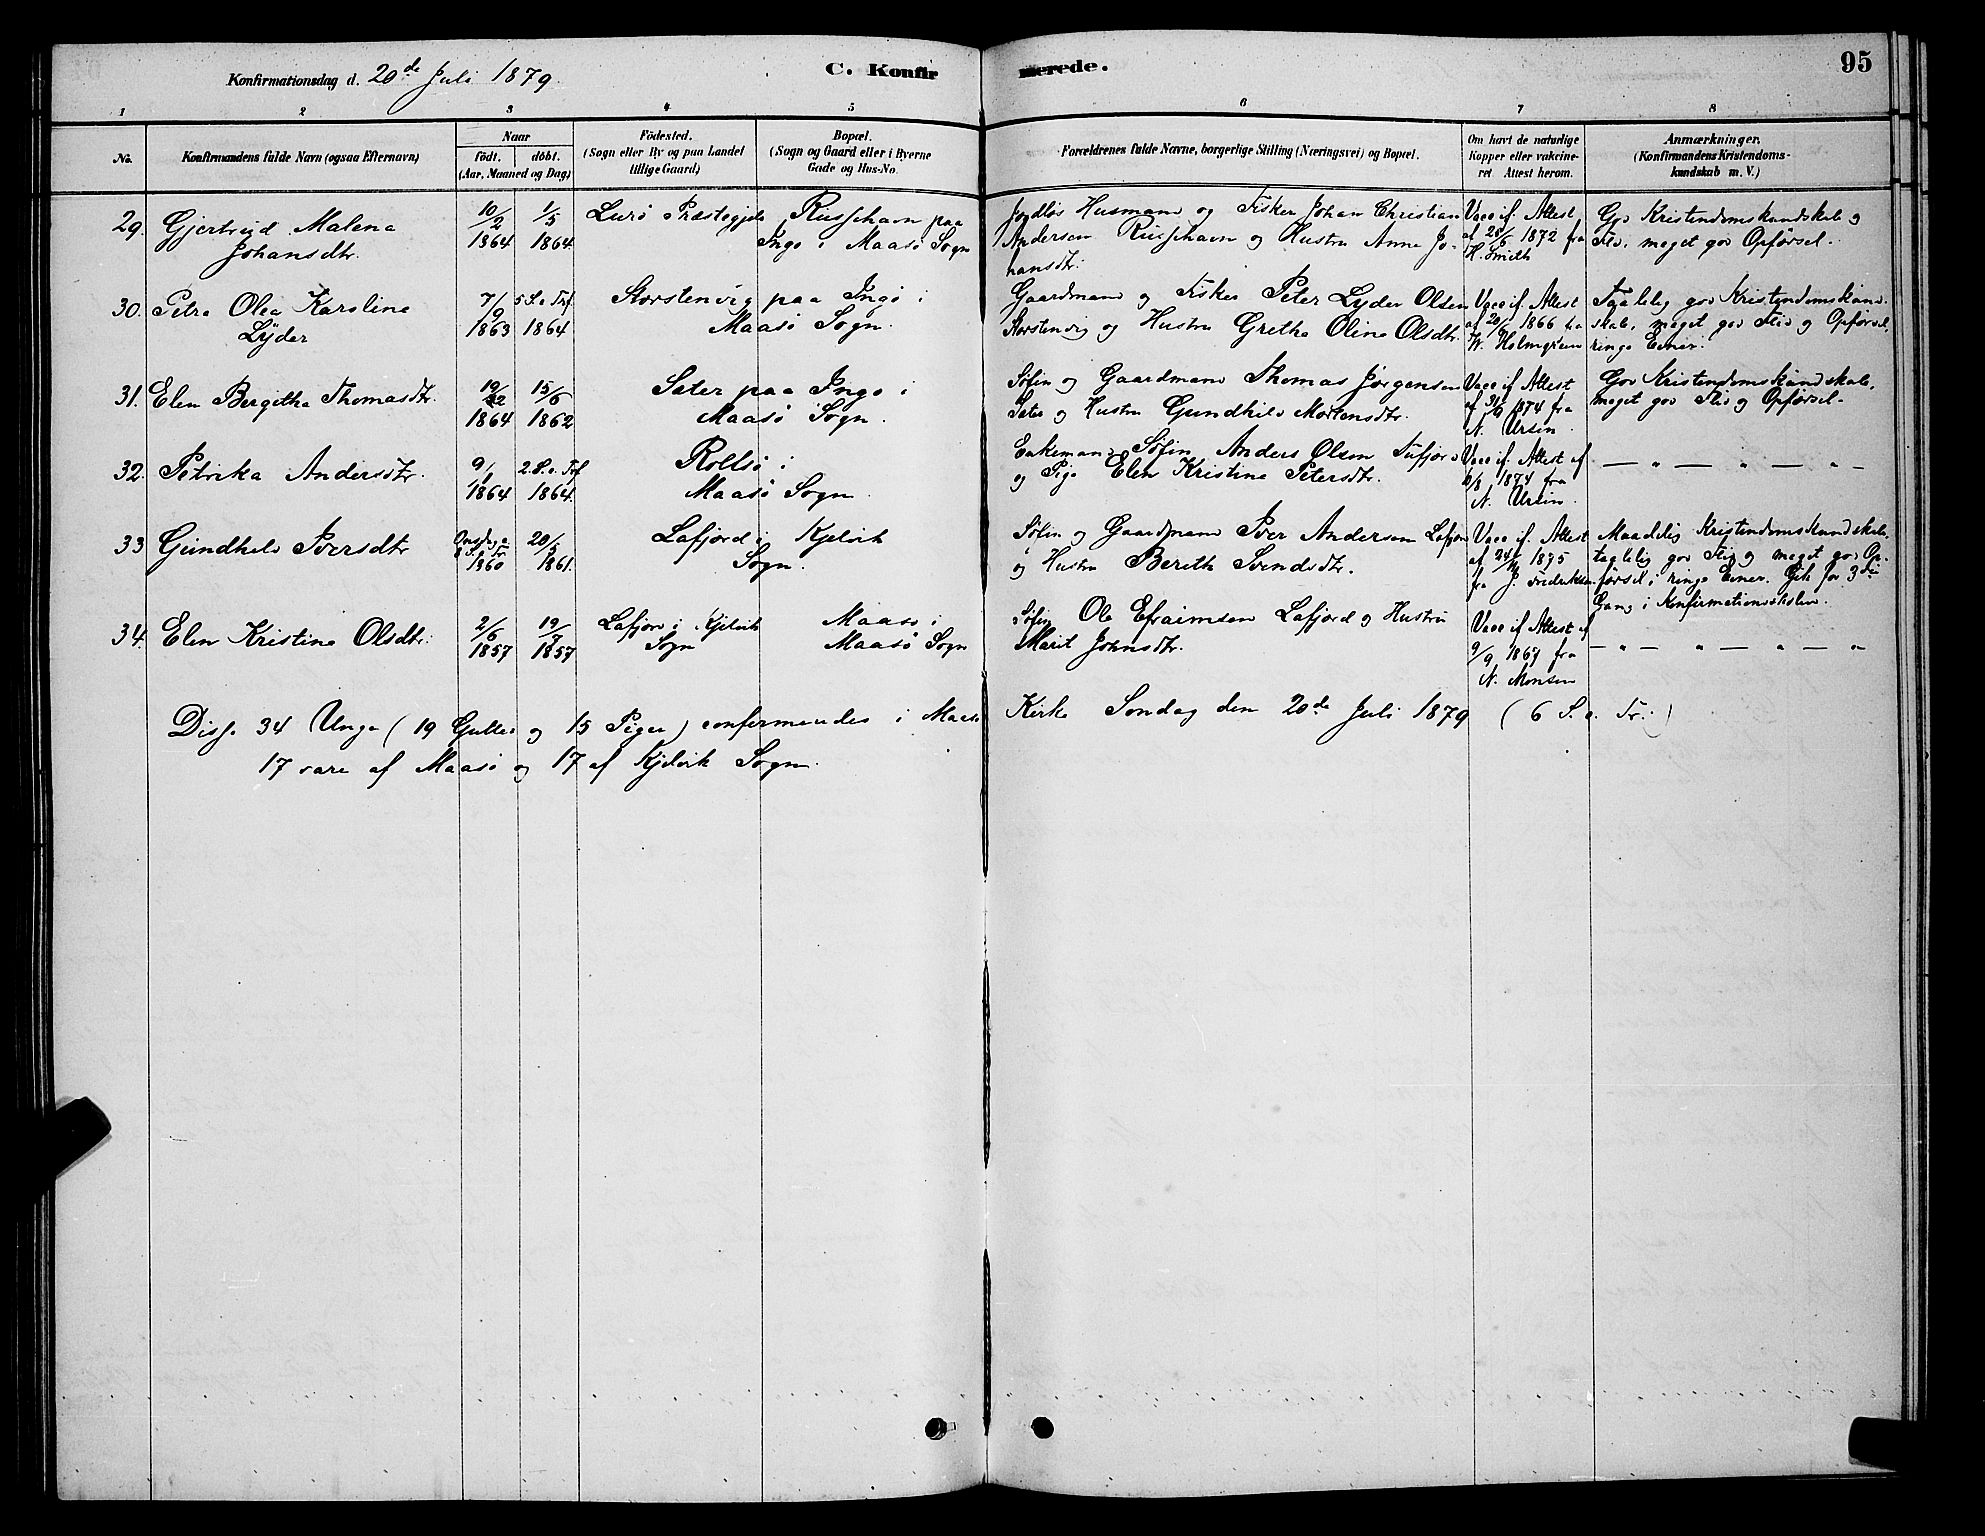 Konfirmationsdag d. 20de Juli 1879.
C. Konfirmerede.
95
1 2 3 4 5 6 7 8
No.
Konfirmandens fulde Navn (ogsaa Efternavn)
Naar
födt. döbt.
(Aar, Maaned og Dag)
Födested.
(Sogn eller By og paa Landet
tillige Gaard)
Bopæl.
(Sogn og Gaard eller i Byerne
Gade og Hus-No.
Forældrenes fulde Navne, borgerlige Stilling (Næringsvei) og Bopæl.
Om havt de naturlige
Kopper eller vakcine-
ret. Attest herom.
Anmærkninger.
(Konfirmandens Kristendoms-
kundskab m. V.)
29. Gjertrud Malena
Johansdtr.
10/2 1864
1/5 1864
Lurö Præstegjeld
Russehavn paa
Ingö i Maasö Sogn
Jordlös Husmand og Fisker Johan Christian
Andersen Russehavn og Hustru Anne Jo-
hansdtr.
Vacc. if. Attest
af 28/6 1872 fra
H. Smith
God Kristendomskundskab og
Flid, meget god Opförsel.
30. Petra Olea Karoline
Lyder
7/9 1863
5 S. e. Trf. 1864
Storstenvig paa Ingö i
Maasö Sogn.
Gaardmand og Fisker Peter Lyder Olsen
Storstenvig og Hustru Grethe Oline Olsdtr.
Vacc. if. Attest
af 20/9 1866 fra
W. Holmgreen
Taalelig god Kristendomskund-
skab, meget god Flid og Opförsel,
ringe Evner.
31. Elen Bergitha Thomasdtr.
19/ 1864
15/6 1862
Sater paa Ingö i
Maasö Sogn.
Söfin og Gaardmand Thomas Jörgensen
Sater og Hustru Gundhild Mortensdtr.
Vacc. if. Attest
af 1874 fra
N. Ursin.
God Kristendomskundskab,
meget god Flid og Opförsel.
32. Petrika Andersdtr.
9/1 1864
2. S. e. Trf. 1864.
Rolfsö i
Maasö Sogn.
Enkemand Söfin Anders Olsen Tufjord
og Pige Elen Kristine Petersdtr.
Vacc. if. Attest af
6/8 1874 fra
N. Ursin.
— " — " — " —
33 Gundhild Iversdtr
Onsdag e.
S. e. Tr 1860
20/5 1861.
Lafjord i Kjelvik
Sogn.
Söfin og Gaardmand Iver Andersen Lafjord
og Hustru Berith Svendsdtr.
Vacc. if. Attest
af 1875
fra J. Fredriksen
Maadelig Kristendomskundskab,
taalelig god Flid og meget god Op-
försel, ringe Evner. Gik for 3die
Gang i Konfirmationsskolen.
34. Elen Kristine Olsdtr.
2/6 1857
19/7 1857
Lafjord i Kjelvik
Sogn
Maasö i
Maasö Sogn
Söfin Ole Efraimsen Lafjord og Hustru
Marit Johnsdtr.
Vacc. if. Attest af
9/9 1867 fra
N. Monsen
— " — " — " — "
Disse 34 Unge (19 Gutter og 15 Piger) confirmeredes i Maasö Kirke Söndag den 20de Juli 1879 (6 S. e. Tr.)
17 vare af Maasö og 17 af Kjelvik Sogn.